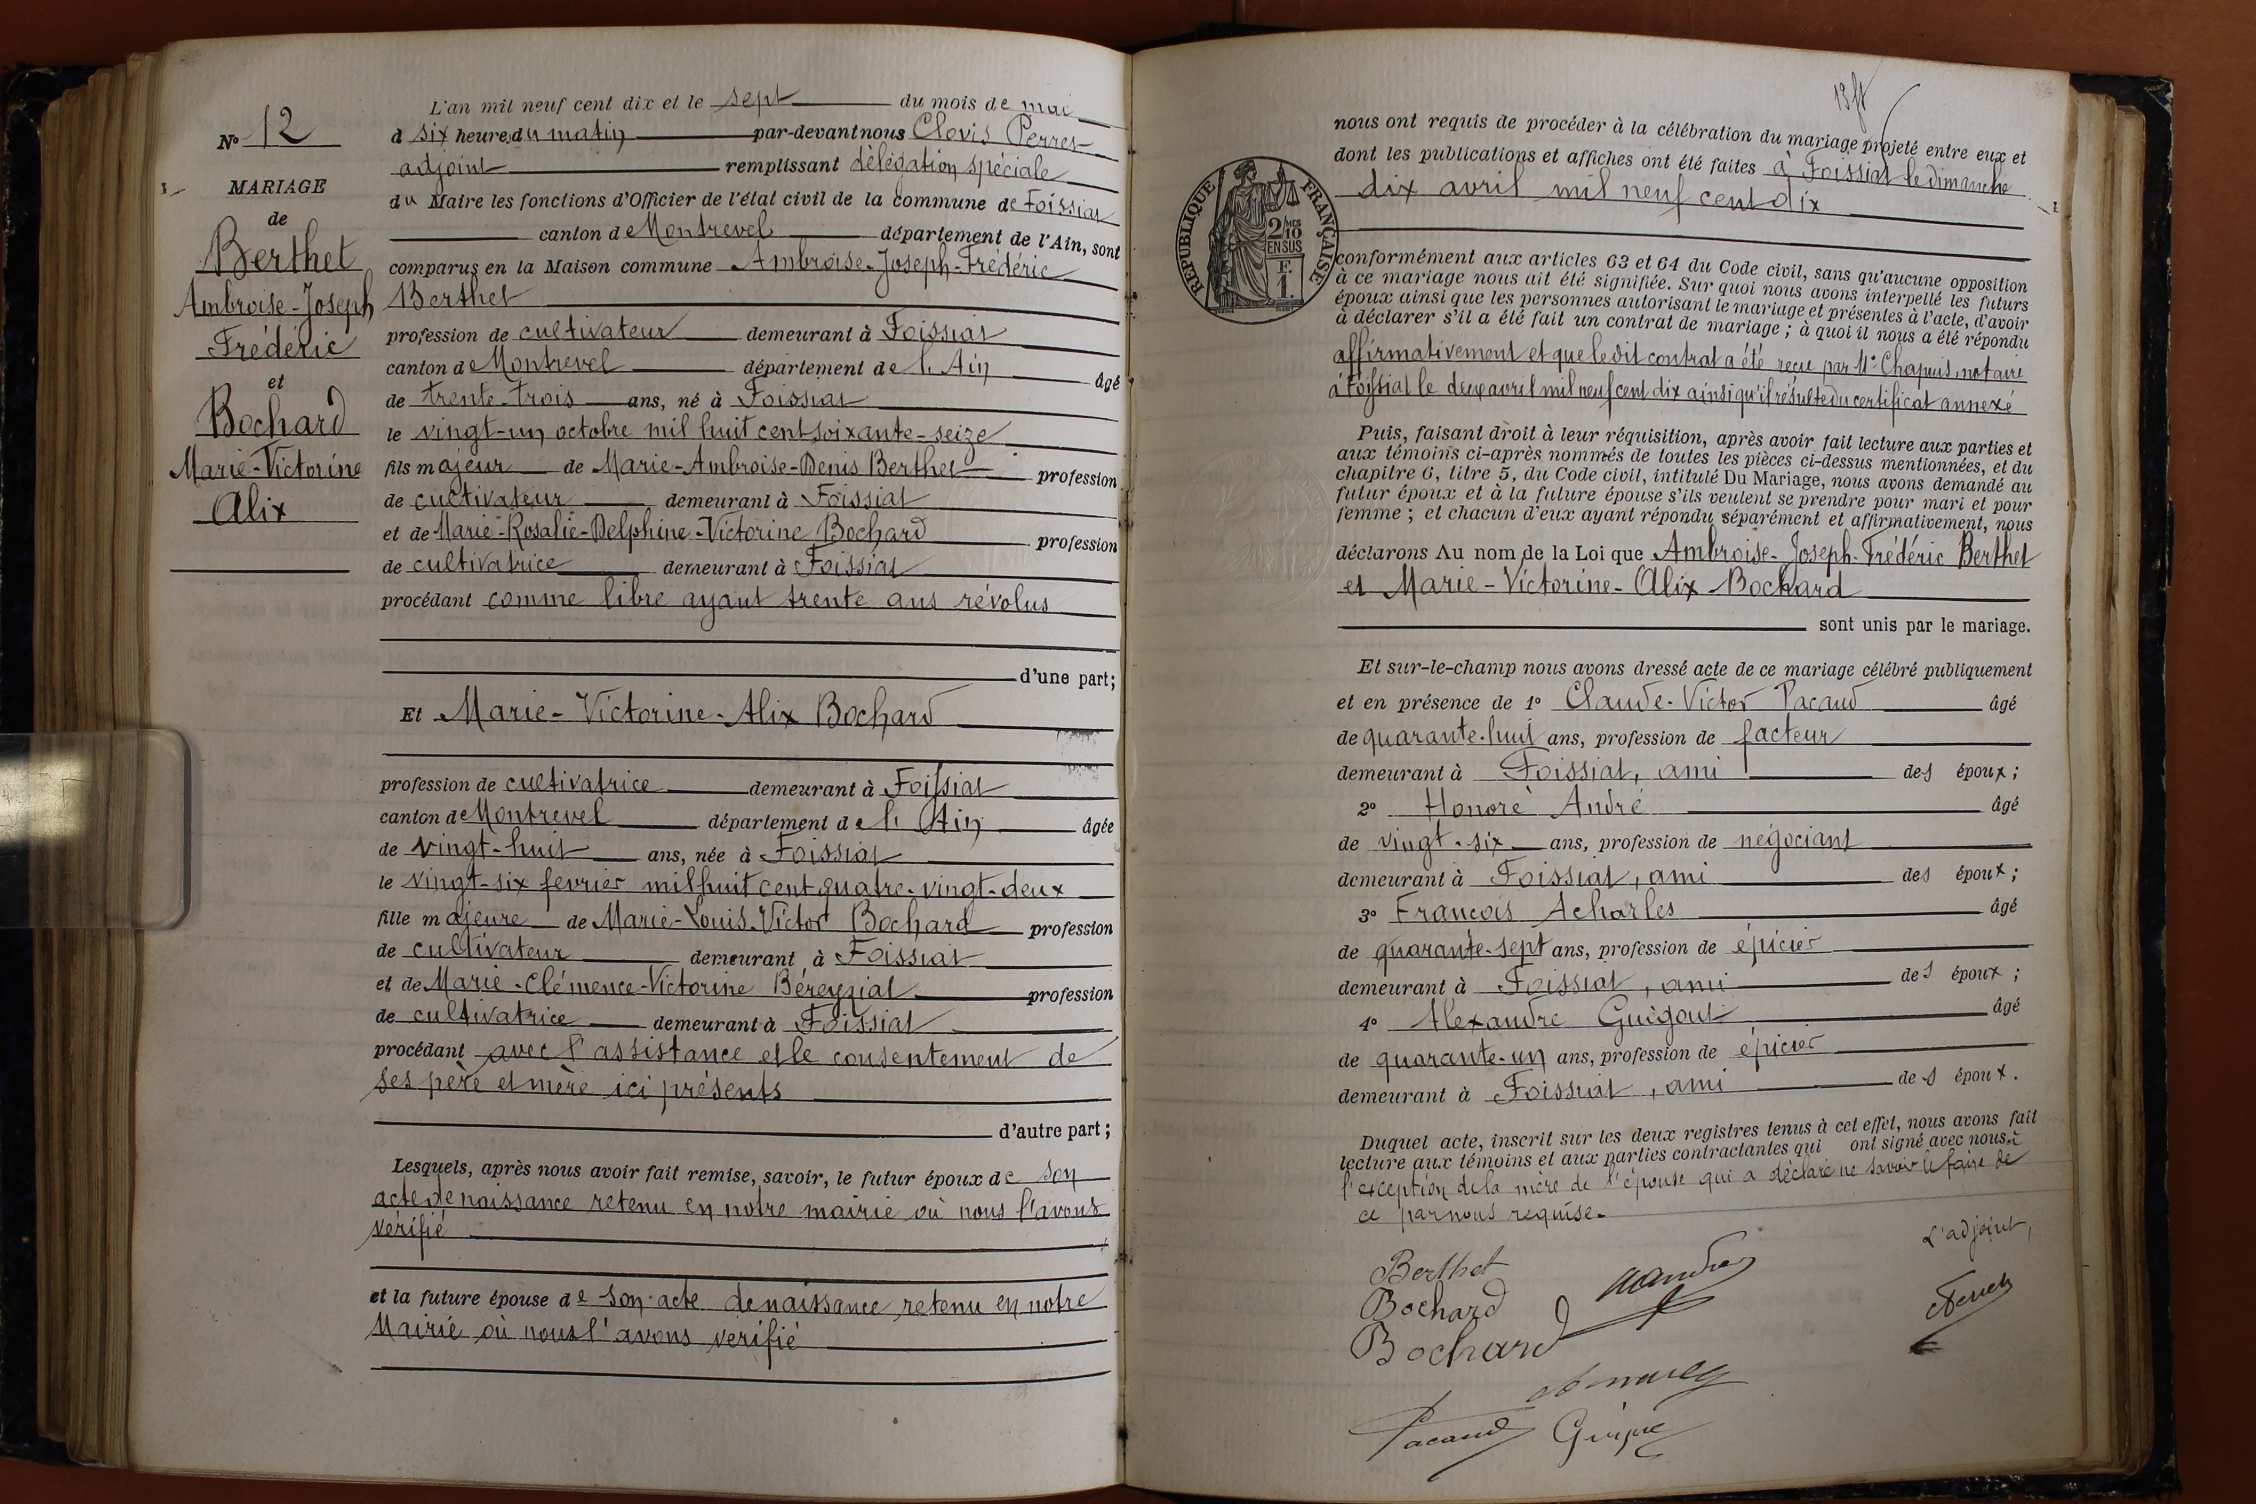 N° 12
MARIAGE
de
Berthet
Ambroise-Joseph
Frédéric
et
Bochard
Marie-Victorine
Alix
L'an mil neuf cent dix et le sept du mois de mai
à six heures du matin par-devant nous Clovis Perret
adjoint remplissant délégation spéciale
du Maire les fonctions d'Officier de l'état civil de la commune de Foissiat
canton de Montrevel département de l'Ain, sont
comparus en la Maison commune Ambroise-Joseph-Frédéric
Berthet
profession de cultivateur demeurant à Foissiat
canton de Montrevel département de l'Ain âgé
de trente-trois ans, né à Foissiat
le vingt-un octobre mil huit cent soixante-seize
fils majeur de Marie-Ambroise-Denis Berthet profession
de cultivateur demeurant à Foissiat
et de Marie-Rosalie-Delphine-Victorine Bochard profession
de cultivatrice demeurant à Foissiat
procédant comme libre ayant trente ans révolus
d'une part;
Et Marie-Victorine-Alix Bochard
profession de cultivatrice demeurant à Foissiat
canton de Montrevel département de l'Ain âgée
de vingt-huit ans, née à Foissiat
le vingt-six fevrier mil huit cent quatre-vingt-deux
fille majeure de Marie-Louis-Victor Bochard profession
de cultivateur demeurant à Foissiat
et de Marie-Clémence-Victorine Béreyziat profession
de cultivatrice demeurant à Foissiat
procédant avec l'assistance et le consentement de
ses père et mère ici présents
d'autre part;
Lesquels, après nous avoir fait remise, savoir, le futur époux de son
acte de naissance retenu en notre mairie où nous l'avons
vérifié
et la future épouse de son acte de naissance retenu en notre
Mairie où nous l'avons verifié
nous ont requis de procéder à la célébration du mariage projeté entre eux et
dont les publications et affiches ont été faites à Foissiat le dimanche
dix avril mil neuf cent dix
REPUBLIQUE FRANÇAISE
2/10 EN SUS
F. 1.
conformément aux articles 63 et 64 du Code civil, sans qu'aucune opposition
à ce mariage nous ait été signifiée. Sur quoi nous avons interpellé les futurs
époux ainsi que les personnes autorisant le mariage et présentes à l'acte, d'avoir
à déclarer s'il a été fait un contrat de mariage; à quoi il nous a été répondu
affirmativement et que ledit contrat a été reçu par Me Chapuis, notaire
à Foissiat le deux avril mil neuf cent dix ainsi qu'il résulte du certificat annexé
Puis, faisant droit à leur réquisition, après avoir fait lecture aux parties et
aux témoins ci-après nommés de toutes les pièces ci-dessus mentionnées, et du
chapitre 6, titre 5, du Code civil, intitulé Du Mariage, nous avons demandé au
futur époux et à la future épouse s'ils veulent se prendre pour mari et pour
femme; et chacun d'eux ayant répondu séparément et affirmativement, nous
déclarons Au nom de la Loi que Ambroise-Joseph-Frédéric Berthet
et Marie-Victorine-Alix Bochard
sont unis par le mariage.
Et sur-le-champ nous avons dressé acte de ce mariage célébré publiquement
et en présence de 1° Claude-Victor Pacaud âgé
de quarante-huit ans, profession de facteur
demeurant à Foissiat, ami des époux;
2° Honoré André âgé
de vingt-six ans, profession de négociant
demeurant à Foissiat, ami des époux;
3° François Acharles âgé
de quarante-sept ans, profession de épicier
demeurant à Foissiat, ami des époux;
4° Alexandre Guigout âgé
de quarante-un ans, profession de épicier
demeurant à Foissiat, ami des époux.
Duquel acte, inscrit sur les deux registres tenus à cet effet, nous avons fait
lecture aux témoins et aux parties contractantes qui ont signé avec nous à
l'exception de la mère de l'épouse qui a déclaré ne savoir le faire de
ce par nous requise.
L'adjoint,
Berthet
Bochard
Bochard
Pacaud